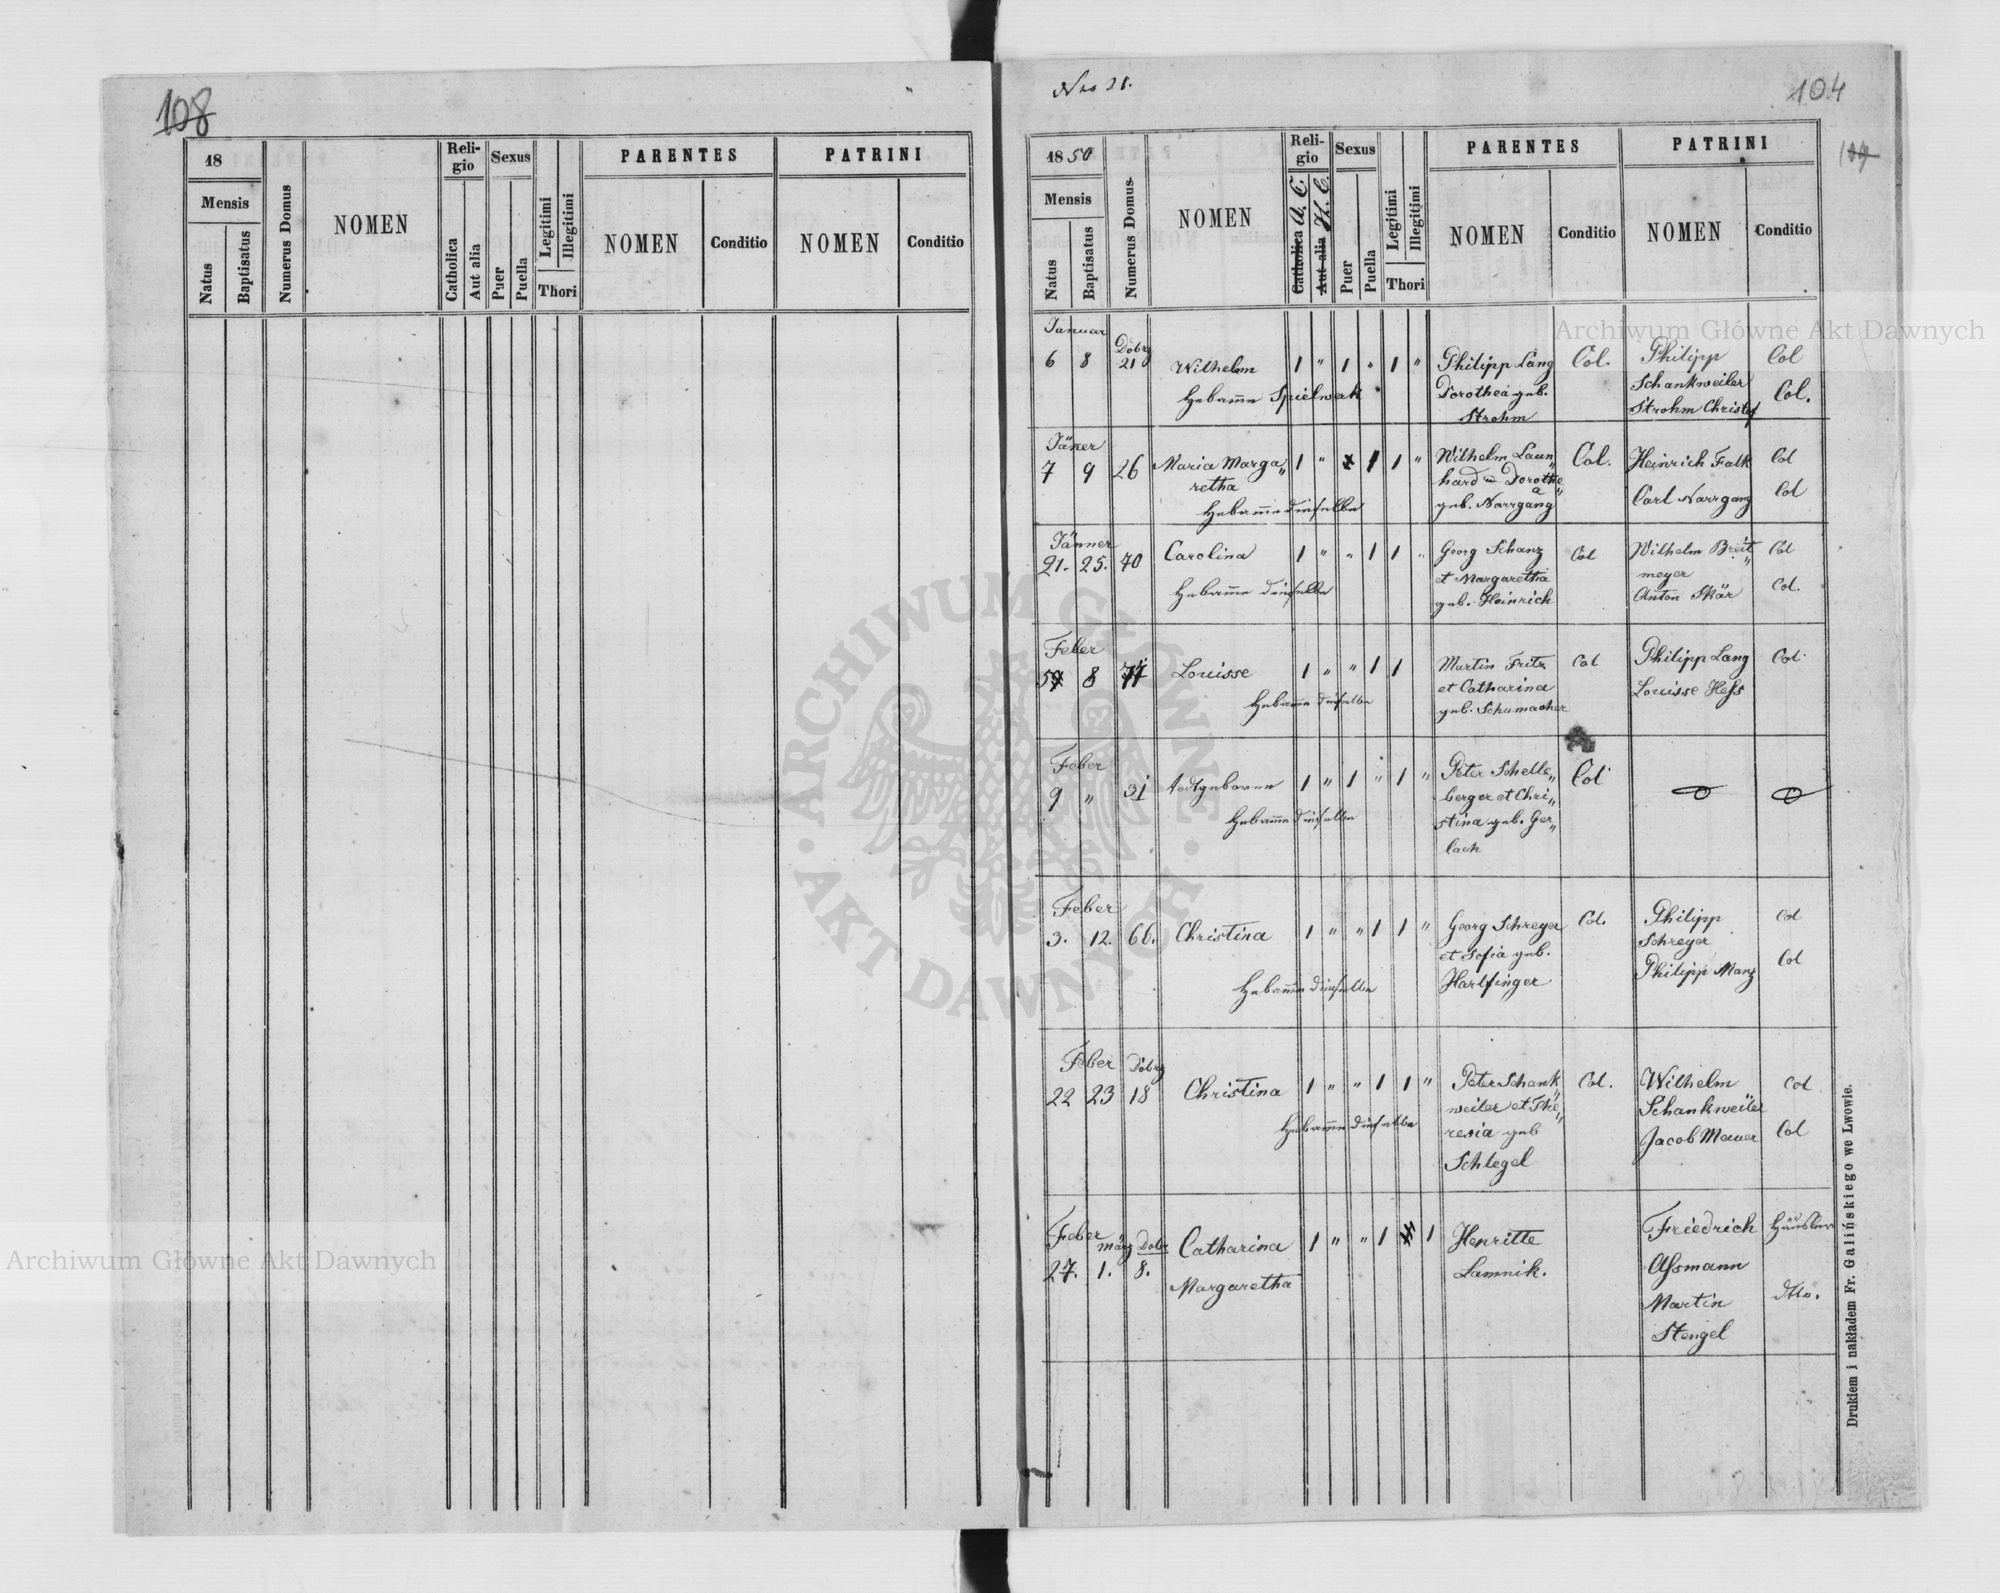 108
18
Mensis
Natus
Baptisatus
Numerus Domus
NOMEN
Reli-
gio
Catholica
Aut alia
Sexus
Puer
Puella
Legitimi
Illegitimi
Thori
PARENTES
NOMEN
Conditio
PATRINI
NOMEN
Conditio
Nro 21.
104
1850
Mensis
Natus
Baptisatus
Numerus Domus
NOMEN
Reli-
gio
Catholica A. C.
Aut alia H. C.
Sexus
Puer
Puella
Legitimi
Illegitimi
Thori
PARENTES
NOMEN
Conditio
PATRINI
NOMEN
Conditio
Januar
6 8 Dobrz 21 Wilhelm 1 " 1 " 1 " Philipp Lang Col. Philipp Col
Hebamme Spielwak Dorothea geb. Schankweiler
Strohm Strohm Christof Col.
Jäner
7 9 26 Maria Marga" 1 " 1 1 " Wilhelm Laun" Col. Heinrich Falk Col
retha hard Dorothe"
a
Hebamme dieselbe geb. Narrgang Carl Narrgang Col
Jänner
21. 25. 40 Carolina 1 " " 1 1 " Georg Schanz Col Wilhelm Breit" Col
et Margaretha meyer
Hebamme dieselbe geb. Heinrich Anton Skär Col.
Feber
5 8 Louisse 1 " " 1 1 Martin Fritz Col Philipp Lang Col
et Catharina Louisse Hess
Hebamme dieselbe geb. Schumacher
Feber
9 " 31 todtgeborne 1 " 1 " 1 " Peter Schelle" Col
berger et Chri"
Hebamme dieselbe stina geb. Ger"
lach
Feber
3. 12. 66. Christina 1 " " 1 1 " Georg Schreyer Col. Philipp Col
et Sofia geb. Schreyer
Hebamme dieselbe Harlfinger Philipp Manz Col
Feber
22 23 Dobrz 18 Christina 1 " " 1 1 " Peter Schank" Col. Wilhelm Col
weiler et The" Schankweiler
Hebamme dieselbe resia geb Jacob Mauer Col
Schlegel
Feber
27. März 1. Dobr 8. Catharina 1 " " 1 1 Henritte Friedrich Häusler
Margaretha Lamnik. Assmann
Martin dtto.
Stengel
Drukiem i nakładem Fr. Galińskiego we Lwowie.
Archiwum Główne Akt Dawnych
Archiwum Główne Akt Dawnych
ARCHIWUM GŁÓWNE
AKT DAWNYCH